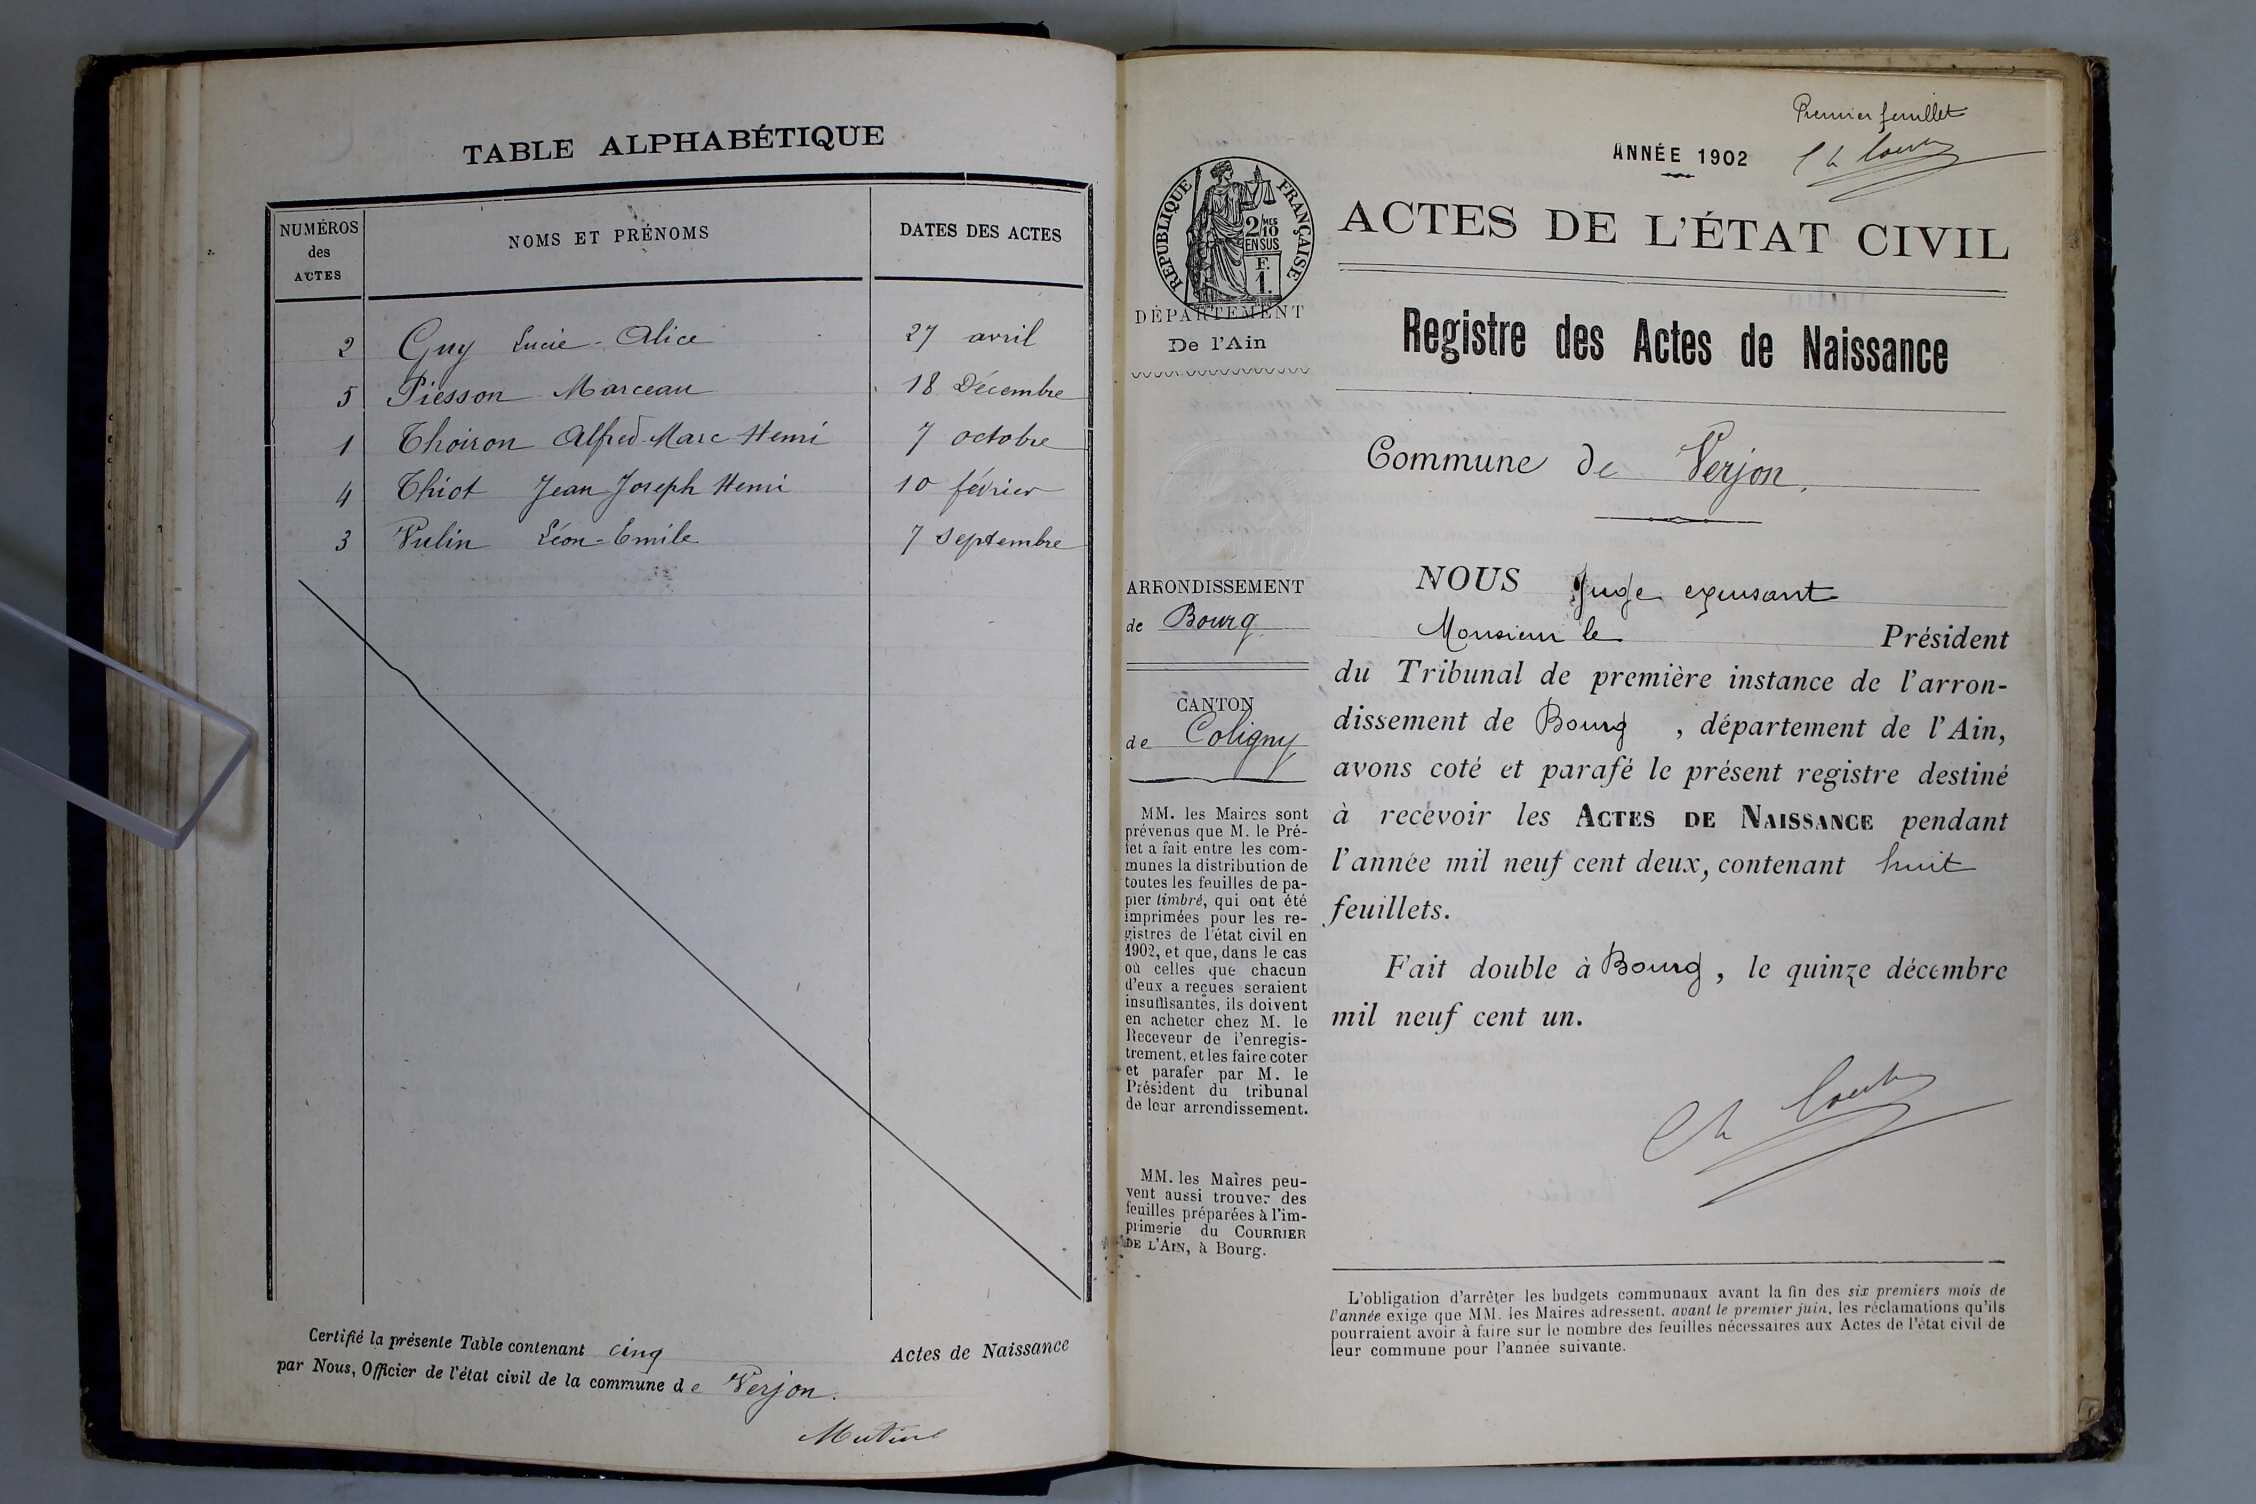 TABLE ALPHABÉTIQUE
NUMÉROS des ACTES NOMS ET PRÉNOMS DATES DES ACTES
2 Guy Lucie-Alice 27 avril
5 Piesson Marceau 18 Décembre
1 Thoiron Alfred-Marc Henri 7 octobre
4 Thiot Jean Joseph Henri 10 février
3 Vulin Léon-Emile 7 septembre
Certifié la présente Table contenant cinq Actes de Naissance
par Nous, Officier de l'état civil de la commune de Verjon.
Premier feuillet
ANNÉE 1902
RÉPUBLIQUE FRANÇAISE
2/10 MES
EN SUS
F.
1.
ACTES DE L'ÉTAT CIVIL
DÉPARTEMENT
De l'Ain
Registre des Actes de Naissance
Commune de Verjon.
ARRONDISSEMENT
de Bourg
CANTON
de Coligny
MM. les Maires sont
prévenus que M. le Pré-
fet a fait entre les com-
munes la distribution de
toutes les feuilles de pa-
pier timbré, qui ont été
imprimées pour les re-
gistres de l'état civil en
1902, et que, dans le cas
où celles que chacun
d'eux a reçues seraient
insuffisantes, ils doivent
en acheter chez M. le
Receveur de l'enregis-
trement, et les faire coter
et parafer par M. le
Président du tribunal
de leur arrondissement.
MM. les Maires peu-
vent aussi trouver des
feuilles préparées à l'im-
primerie du COURRIER
DE L'AIN, à Bourg.
NOUS Juge
Monsieur le Président
du Tribunal de première instance de l'arron-
dissement de Bourg, département de l'Ain,
avons coté et parafé le présent registre destiné
à recevoir les ACTES DE NAISSANCE pendant
l'année mil neuf cent deux, contenant huit
feuillets.
Fait double à Bourg, le quinze décembre
mil neuf cent un.
L'obligation d'arrêter les budgets communaux avant la fin des six premiers mois de
l'année exige que MM. les Maires adressent, avant le premier juin, les réclamations qu'ils
pourraient avoir à faire sur le nombre des feuilles nécessaires aux Actes de l'état civil de
leur commune pour l'année suivante.